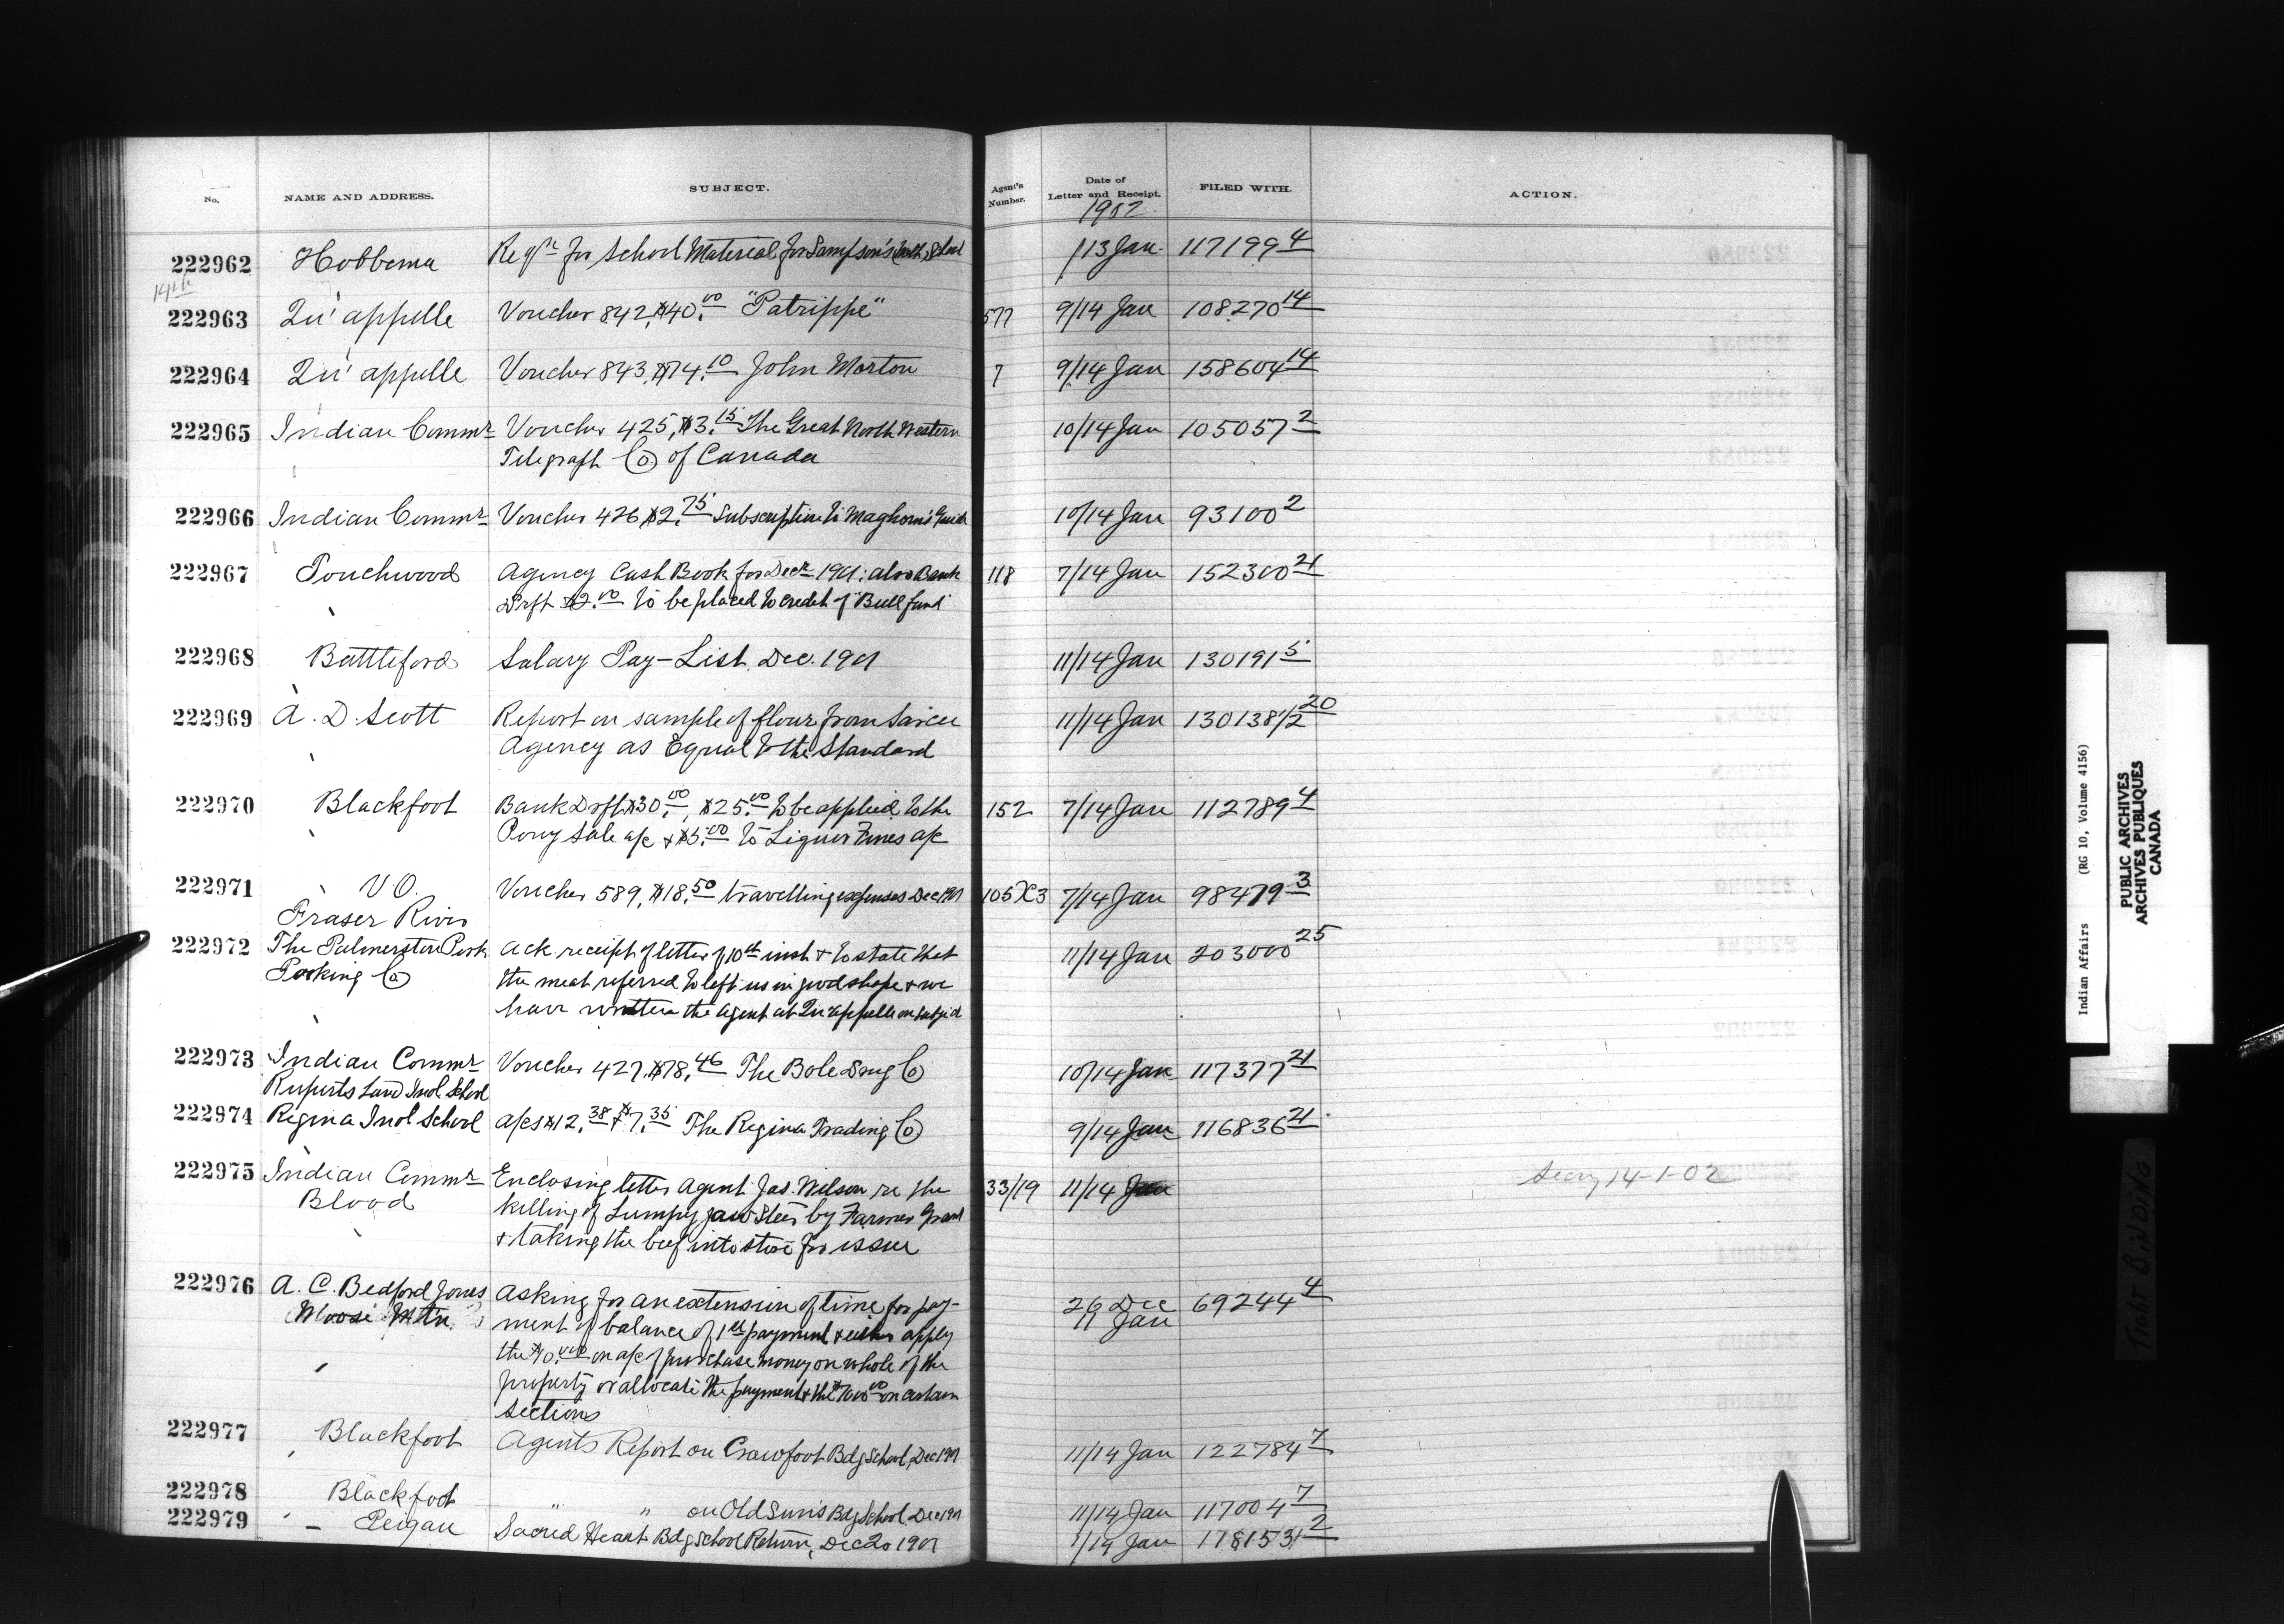 No. NAME AND ADDRESS. SUBJECT. Agent's Number. Date of Letter and Receipt. FILED WITH. ACTION.
1902
222962 Hobbema Reqn for School Material for Sampson's School 13 Jan. 117199 4
14th
222963 Qu'appelle Voucher 842, $40.00 "Patrippe" 577 9/14 Jan 108270 14
222964 Qu'appelle Voucher 843, $74.10 John Morton 7 9/14 Jan 158604 14
222965 Indian Commr Voucher 425, $3.15 The Great North Western 10/14 Jan 105057 2
Telegraph Co of Canada
222966 Indian Commr Voucher 426 $2.75 Subscription to Maghorn's Guide 10/14 Jan 93100 2
222967 Touchwood Agency Cash Book for Decr 1901; also Bank 118 7/14 Jan 152300 21
Drft $2.00 to be placed to credit of "Bull fund"
222968 Battleford Salary Pay-List, Dec. 1901 11/14 Jan 130191 5
222969 A. D. Scott Report on sample of flour from Sarcee 11/14 Jan 130138 1/2 20
Agency as Equal to the Standard
222970 Blackfoot Bank Drft $30.00, $25.00 to be applied to the 152 7/14 Jan 112789 4
Pony Sale a/c & $5.00 to Liquor Fines a/c
222971 V O. Voucher 589, $18.50 travelling expenses Dec 1901 105X3 7/14 Jan 98479 3
Fraser River
222972 The Palmerston Pork Ack receipt of letter of 10th inst & to state that 11/14 Jan 203000 25
Packing Co the meat referred to left us in good shape & we
have written the agent at Qu'appelle on subject
222973 Indian Commr Voucher 427, $78.46 The Bole Drug Co 10/14 Jan 117377 21
Ruperts Land Indl School
222974 Regina Indl School a/cs $12.38 & $7.35 The Regina Trading Co 9/14 Jan 116836 21
222975 Indian Commr Enclosing letter Agent Jas. Wilson re the 33/19 11/14 Jan Secy 14-1-02
Blood killing of Lumpy jaw Steer by Farmer Grant
& taking the beef into store for issue
222976 A. C. Bedford Jones Asking for an extension of time for pay- 26 Dec 69244 4
(Moose Mtn.) ment of balance of 1st payment & either apply 11 Jan
the on a/c of purchase money on whole of the
property or allocate the payment & the on certain
sections
222977 Blackfoot Agents Report on Crowfoot Bdg School, Dec 1901 11/14 Jan 122784 7
222978 Blackfoot " " on Old Sun's Bdg School, Dec 1901 11/14 Jan 117004 7
222979 Peigan Sacred Heart Bdg School Return, Dec 1901 1/14 Jan 2
Indian Affairs (RG 10, Volume 4156)
PUBLIC ARCHIVES
ARCHIVES PUBLIQUES
CANADA
TIGHT BINDING